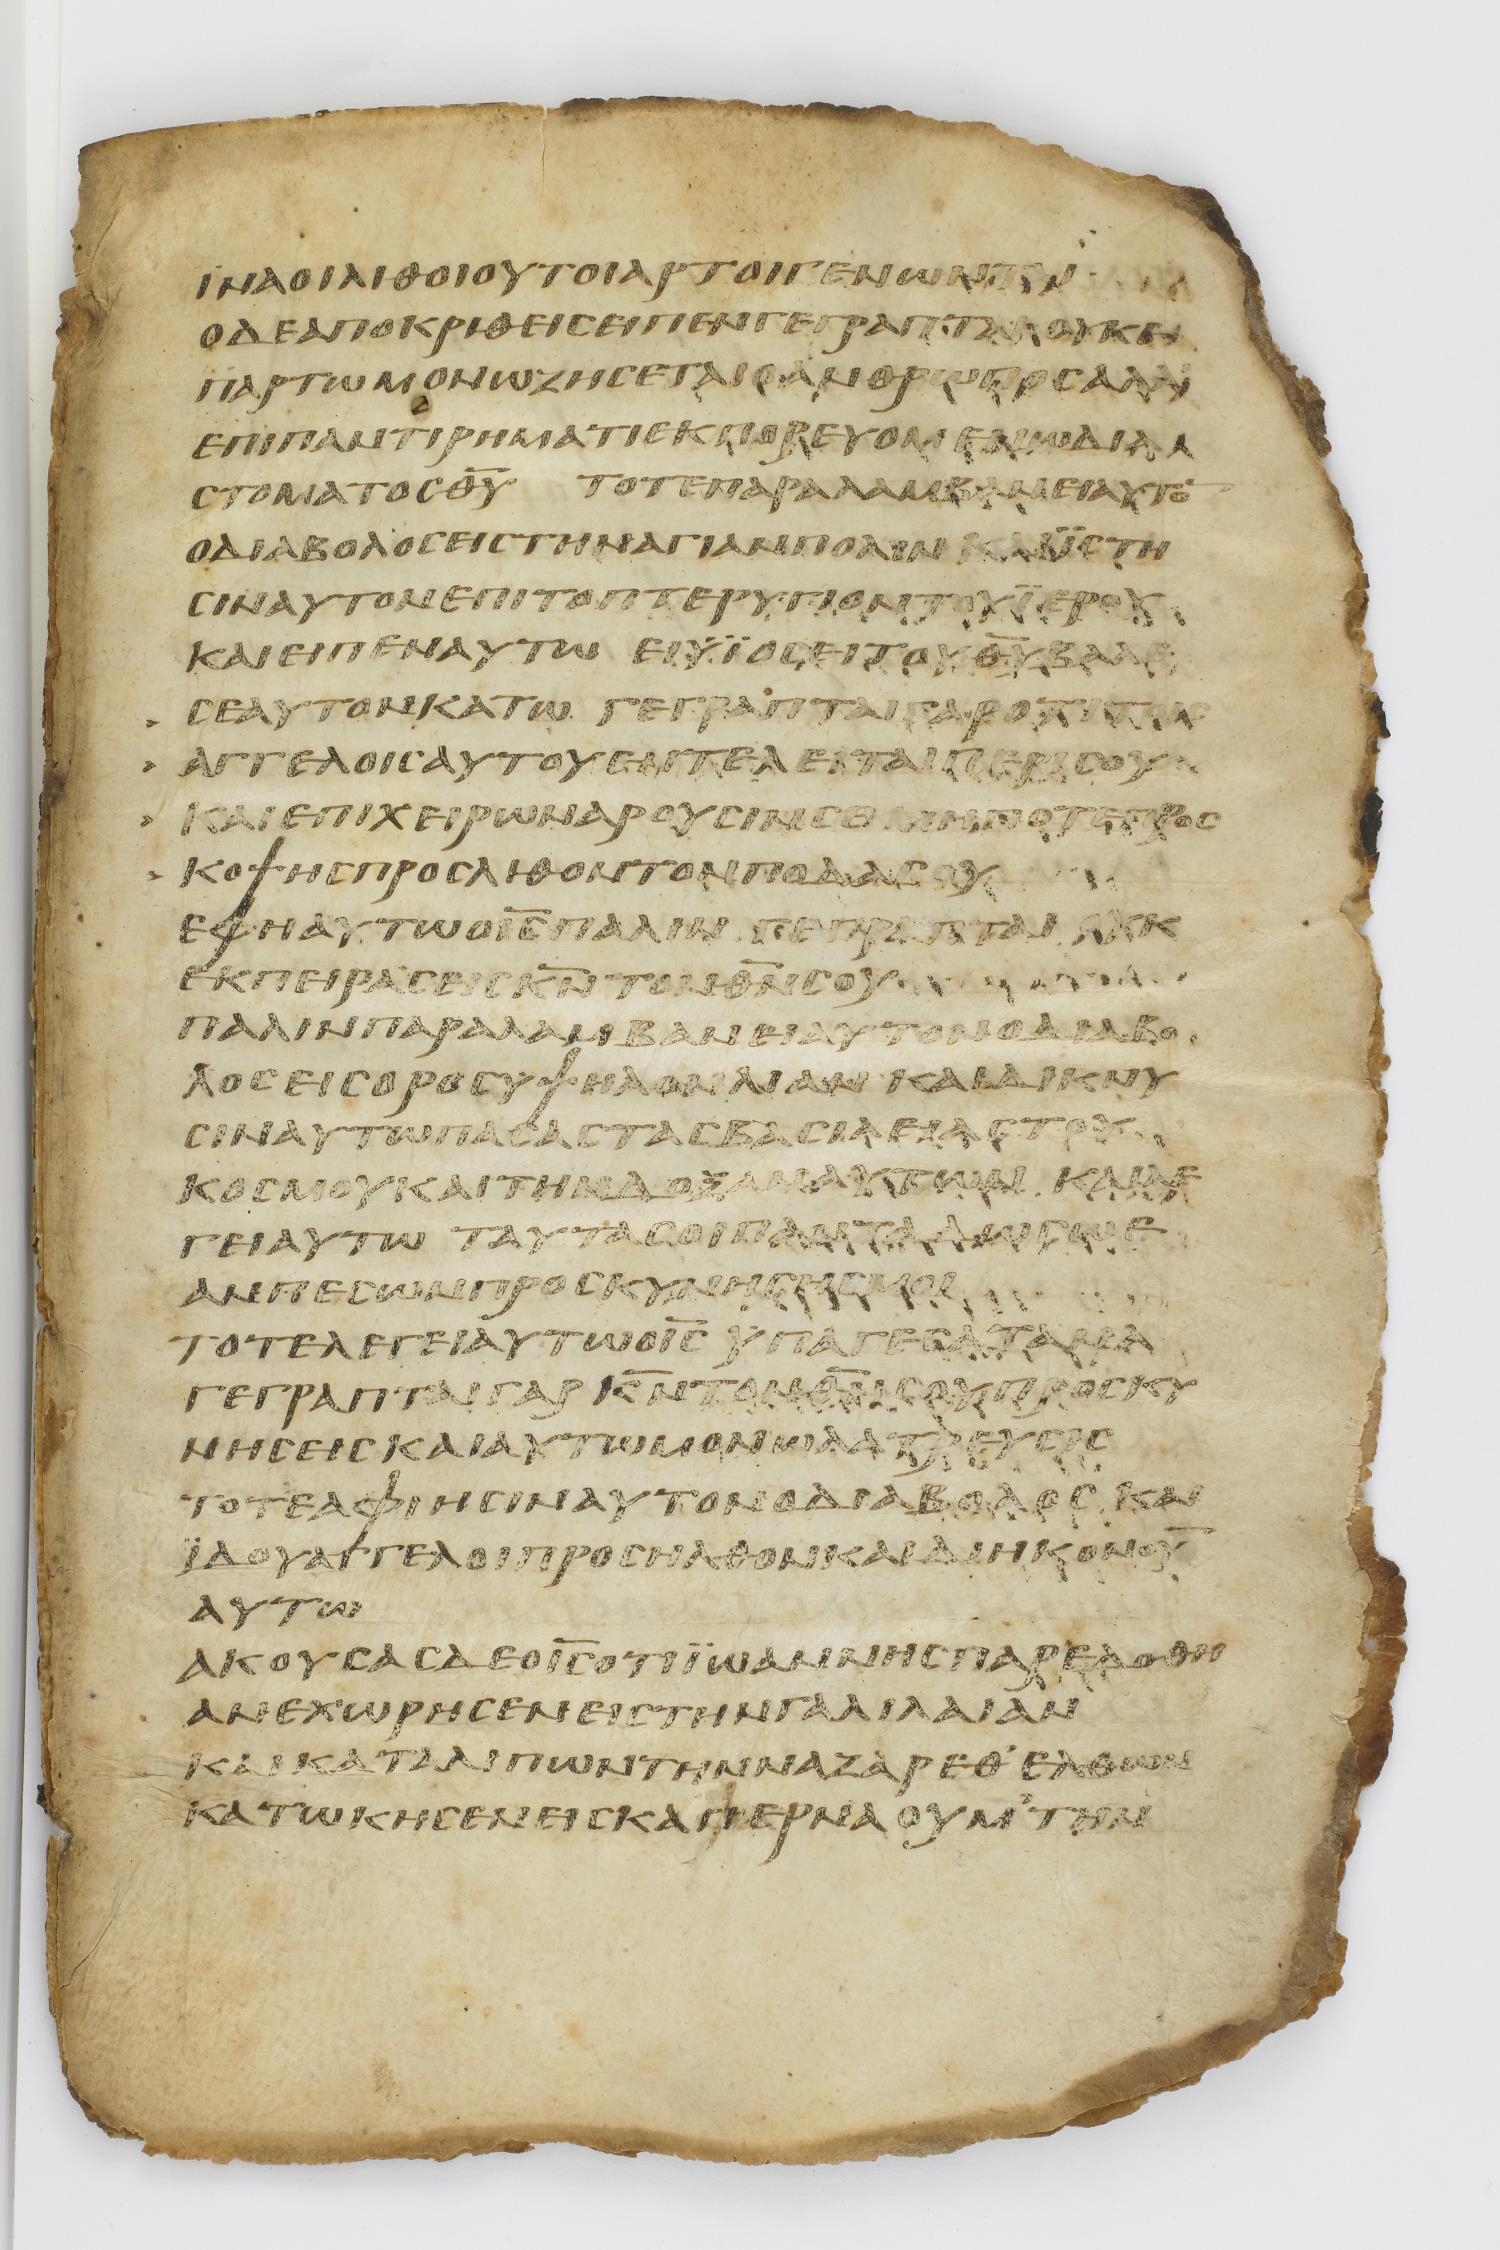 ΙΝΑΟΙΛΙΘΟΙΟΥΤΟΙΑΡΤΟΙΓΕΝΩΝΤΑΙ
ΟΔΕΑΠΟΚΡΙΘΕΙϹΕΙΠΕΝΓΕΓΡΑΠΤΑΙΟΥΚΕΠ
ΠΑΡΤΩΜΟΝΩΖΗϹΕΤΑΙΟΑΝΘΡΩΠΟϹΑΛΛ
ΕΠΙΠΑΝΤΙΡΗΜΑΤΙΕΚΠΟΡΕΥΟΜΕΝΩΔΙΑ
ϹΤΟΜΑΤΟϹΘ̅Υ̅ ΤΟΤΕΠΑΡΑΛΑΜΒΑΝΕΙΑΥΤΟ̅
ΟΔΙΑΒΟΛΟϹΕΙϹΤΗΝΑΓΙΑΝΠΟΛΙΝ ΚΑΙΪϹΤΗ
ϹΙΝΑΥΤΟΝΕΠΙΤΟΠΤΕΡΥΓΙΟΝΤΟΥΪΕΡΟΥ
ΚΑΙΕΙΠΕΝΑΥΤΩ ΕΙΫΪΟϹΕΙΤΟΥΘ̅Υ̅ΒΑΛΕ
> ϹΕΑΥΤΟΝΚΑΤΩ ΓΕΓΡΑΠΤΑΙΓΑΡΟΤΙΤΟΙϹ
> ΑΓΓΕΛΟΙϹΑΥΤΟΥΕΝΤΕΛΕΙΤΑΙΠΕΡΙϹΟΥ
> ΚΑΙΕΠΙΧΕΙΡΩΝΑΡΟΥϹΙΝϹΕ ΜΗΠΟΤΕΠΡΟϹ
> ΚΟΨΗϹΠΡΟϹΛΙΘΟΝΤΟΝΠΟΔΑϹΟΥ
ΕΦΗΑΥΤΩΟΙ̅Ϲ̅ΠΑΛΙΝ ΓΕΓΡΑΠΤΑΙ ΟΥΚ
ΕΚΠΕΙΡΑϹΕΙϹΚ̅Ν̅ΤΟΝΘ̅Ν̅ϹΟΥ
ΠΑΛΙΝΠΑΡΑΛΑΜΒΑΝΕΙΑΥΤΟΝΟΔΙΑΒΟ
ΛΟϹΕΙϹΟΡΟϹΥΨΗΛΟΝΛΙΑΝ ΚΑΙΔΙΚΝΥ
ϹΙΝΑΥΤΩΠΑϹΑϹΤΑϹΒΑϹΙΛΕΙΑϹΤΟΥ
ΚΟϹΜΟΥΚΑΙΤΗΝΔΟΞΑΝΑΥΤΩΝ ΚΑΙΛΕ
ΓΕΙΑΥΤΩ ΤΑΥΤΑϹΟΙΠΑΝΤΑΔΩϹΩΕ
ΑΝΠΕϹΩΝΠΡΟϹΚΥΝΗϹΗϹΜΟΙ
ΤΟΤΕΛΕΓΕΙΑΥΤΩΟΙ̅Ϲ̅ ΫΠΑΓΕϹΑΤΑΝΑ
ΓΕΓΡΑΠΤΑΙΓΑΡ Κ̅Ν̅ΤΟΝΘ̅Ν̅ϹΟΥΠΡΟϹΚΥ
ΝΗϹΕΙϹ ΚΑΙΑΥΤΩΜΟΝΩΛΑΤΡΕΥϹΙϹ
ΤΟΤΕΑΦΙΗϹΙΝΑΥΤΟΝΟΔΙΑΒΟΛΟϹ ΚΑΙ
ΪΔΟΥΑΓΓΕΛΟΙΠΡΟϹΗΛΘΟΝΚΑΙΔΙΗΚΟΝΟΥ̅
ΑΥΤΩ
ΑΚΟΥϹΑϹΔΕΟΙ̅Ϲ̅ΟΤΙΪΩΑΝΝΗϹΠΑΡΕΔΟΘΗ
ΑΝΕΧΩΡΗϹΕΝΕΙϹΤΗΝΓΑΛΙΛΑΙΑΝ
ΚΑΙΚΑΤΑΛΙΠΩΝΤΗΝΝΑΖΑΡΕΘ ̓ΕΛΘΩΝ
ΚΑΤΩΚΗϹΕΝΕΙϹΚΑΠΕΡΝΑΟΥΜ ̓ΤΗΝ